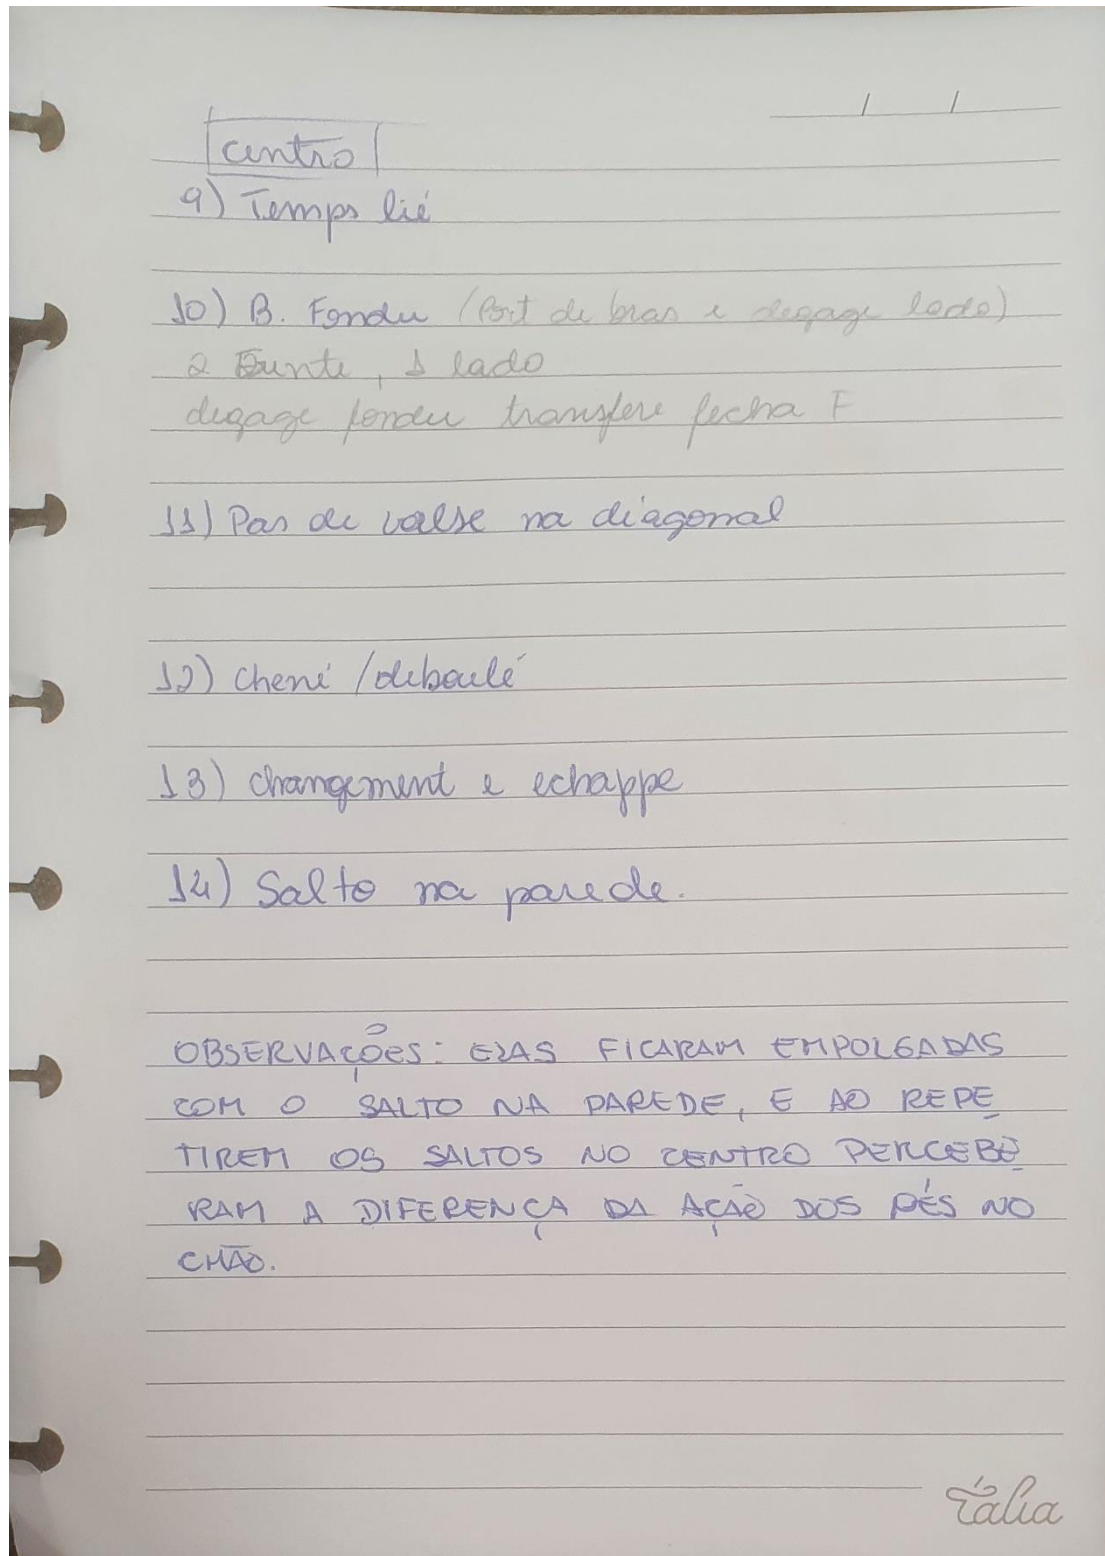 / /
centro
9) Temps lié
10) B. Fondu (Port de bras e degage lado)
2 Frente, 1 lado
degage fondu transfere fecha F
11) Pas de valse na diagonal
12) Chené /deboulé
13) changement e echappe
14) Salto na parede.
OBSERVAÇÕES: ELAS FICARAM EMPOLGADAS
COM O SALTO NA PAREDE, E AO REPE
TIREM OS SALTOS NO CENTRO PERCEBE
RAM A DIFERENÇA DA AÇÃO DOS PÉS NO
CHÃO.
Tália